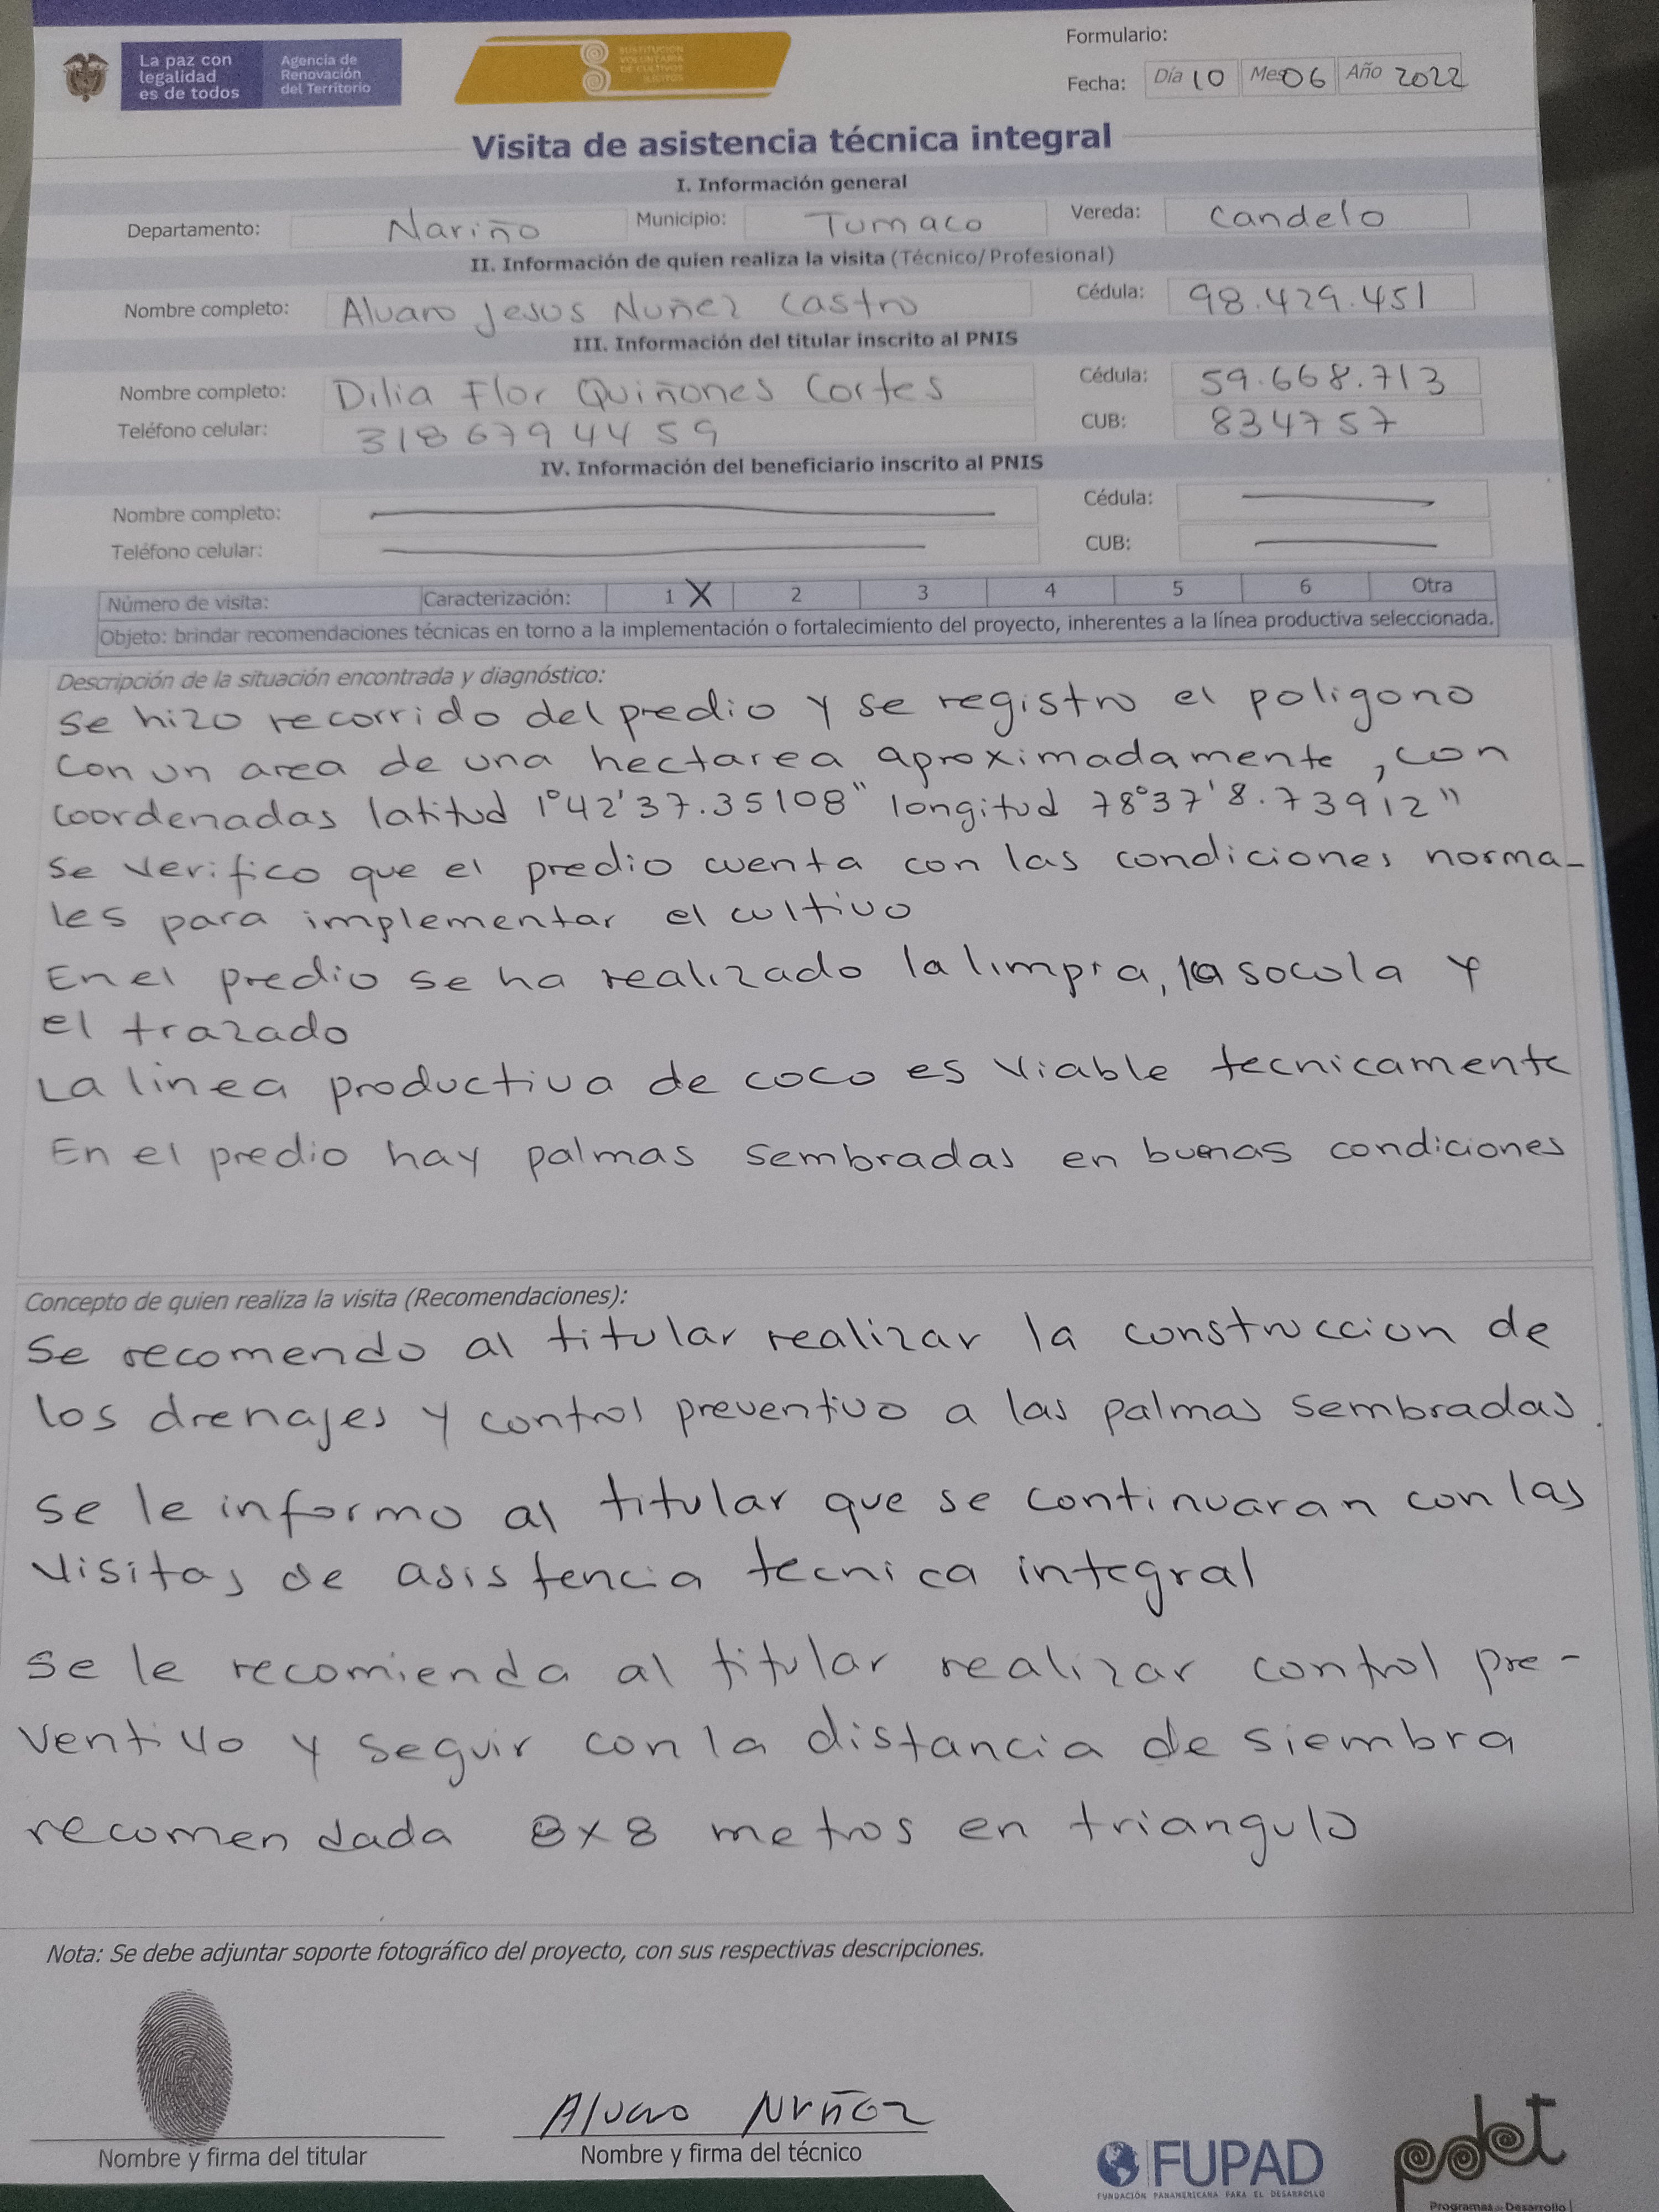 La paz con
legalidad
es de todos
Agencia de
Renovación
del Territorio
SUSTITUCIÓN
VOLUNTARIA
DE CULTIVOS
ILÍCITOS
Formulario:
Fecha: Día 10 Mes 06 Año 2022
Visita de asistencia técnica integral
I. Información general
Departamento: Nariño Municipio: Tumaco Vereda: Candelo
II. Información de quien realiza la visita (Técnico/Profesional)
Nombre completo: Alvaro Jesus Nuñez Castro Cédula: 98.429.451
III. Información del titular inscrito al PNIS
Nombre completo: Dilia Flor Quiñones Cortes Cédula: 59.668.713
Teléfono celular: 3186794459 CUB: 834757
IV. Información del beneficiario inscrito al PNIS
Nombre completo: Cédula:
Teléfono celular: CUB:
Número de visita: Caracterización: 1 X 2 3 4 5 6 Otra
Objeto: brindar recomendaciones técnicas en torno a la implementación o fortalecimiento del proyecto, inherentes a la línea productiva seleccionada.
Descripción de la situación encontrada y diagnóstico:
Se hizo recorrido del predio y se registro el poligono
con un area de una hectarea aproximadamente, con
coordenadas latitud 1°42'37.35108" longitud 78°37'8.73912"
Se verifico que el predio cuenta con las condiciones norma-
les para implementar el cultivo
En el predio se ha realizado la limpia, la socola y
el trazado
La linea productiva de coco es viable tecnicamente
En el predio hay palmas sembradas en buenas condiciones
Concepto de quien realiza la visita (Recomendaciones):
Se recomendo al titular realizar la construccion de
los drenajes y control preventivo a las palmas sembradas.
Se le informo al titular que se continuaran con las
visitas de asistencia tecnica integral
Se le recomienda al titular realizar control pre-
ventivo y seguir con la distancia de siembra
recomendada 8x8 metros en triangulo
Nota: Se debe adjuntar soporte fotográfico del proyecto, con sus respectivas descripciones.
Alvaro Nuñez
Nombre y firma del titular
Nombre y firma del técnico
FUPAD
FUNDACIÓN PANAMERICANA PARA EL DESARROLLO
pdet
Programas de Desarrollo